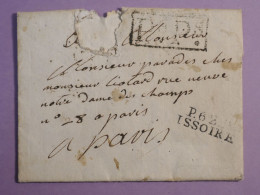 Monsieur
Monsieur paradès chez
monsieur liotard rue neuve
notre Dame des champs
n° 28 a paris
a paris
P.62.P.
ISSOIRE